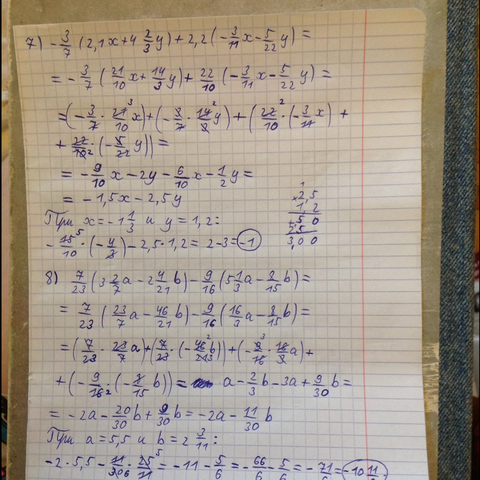 7) -3/7 (2,1x+4 2/3 y)+2,2(-3/11 x-5/22 y)=
=-3/7 (21/10 x+14/3 y)+22/10 (-3/11 x-5/22 y)=
=(-3/7 · 21³/10 x)+(-3/7 · 14²/3 y)+(22²/10 · (-3/11 x) +
+ 22/10 2 · (-5/22 y))=
=-9/10 x-2y-6/10 x-1/2 y=
=-1,5x-2,5y
При x=-1 1/3 и y=1,2:
-15⁵/10 · (-4/3)-2,5·1,2=2-3=-1
×2,5
1,2
+50
25
3,00
8) 7/23 (3 2/7 a-2 4/21 b)-9/16 (5 1/3 a-8/15 b)=
=7/23 (23/7 a-46/21 b)-9/16 (16/3 a-8/15 b)=
=(7/23 · 23/7 a)+(7/23 · (-46²/21 3 b))+(-9³/16 · 16/3 a)+
+(-9/16 2 · (-8/15 b))= a-2/3 b-3a+9/30 b=
=-2a-20/30 b+9/30 b=-2a-11/30 b
При a=5,5 и b=2 3/11:
-2·5,5-11/30 6 · 25⁵/11=-11-5/6=-66/6-5/6=-71/6=